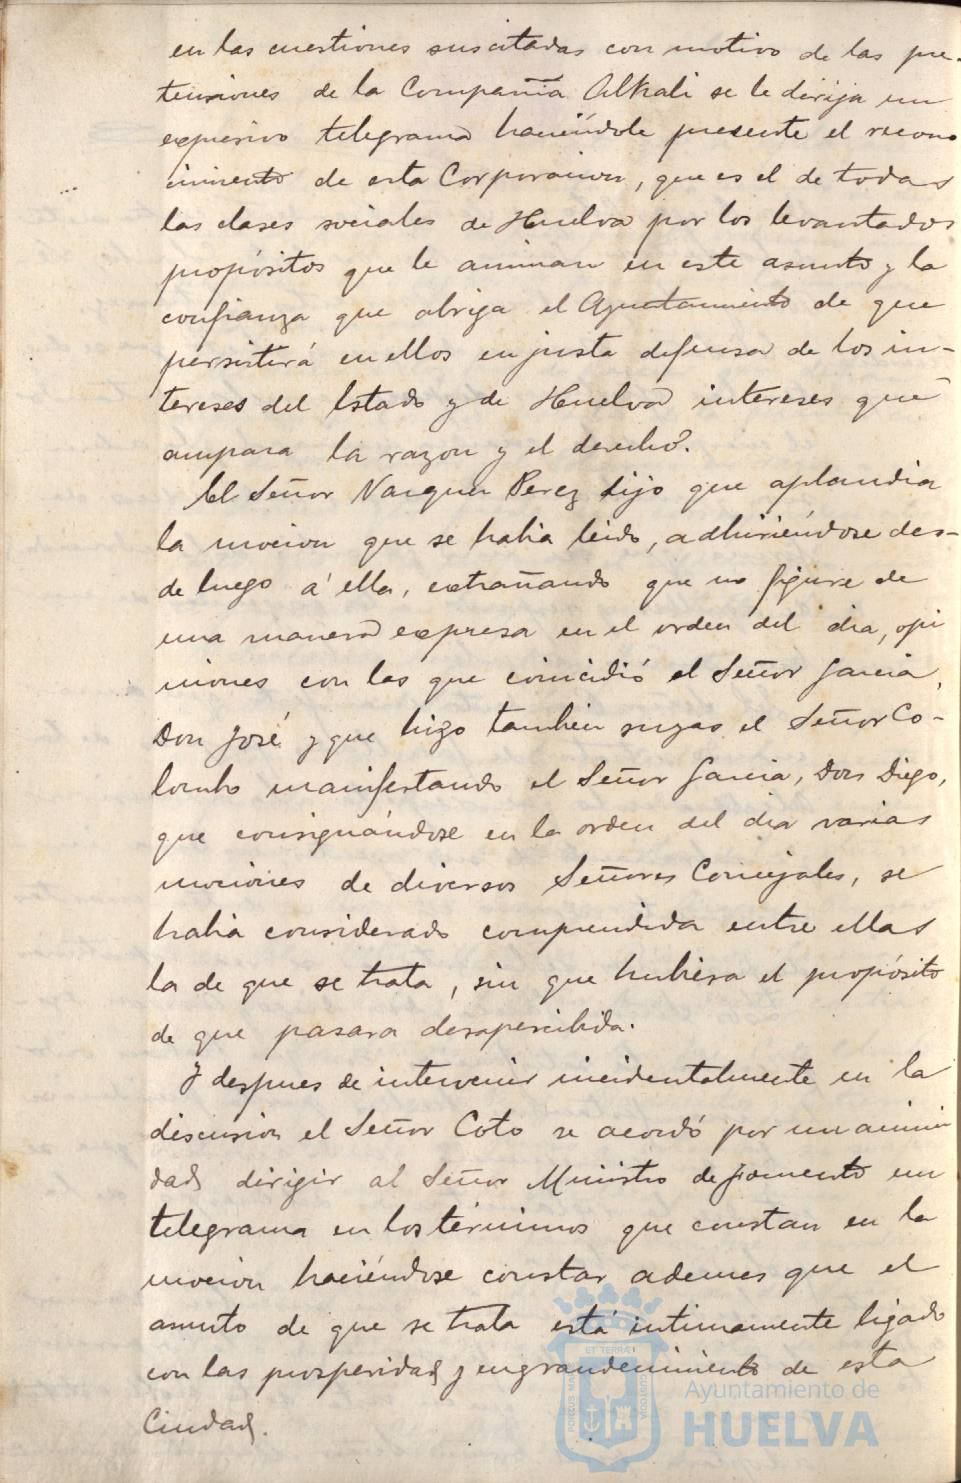 en las cuestiones suscitadas con motivo de las pre-
tensiones de la Compañia Alkali se le dirija un
expresivo telegrama haciéndole presente el recono
cimiento de esta Corporacion, que es el de todas
las clases sociales de Huelva por los levantados
propósitos que le animan en este asunto y la
confianza que abriga el Ayuntamiento de que
persistirá en ellos en justa defensa de los in-
tereses del Estado y de Huelva intereses que
ampara la razon y el derecho.
El Señor Vazquez Perez dijo que aplaudia
la mocion que se habia leido, adhiriéndose des-
de luego á ella, extrañando que no figure de
una manera expresa en el orden del dia, opi
niones con las que coincidió el Señor Garcia,
Don José y que hizo tambien suyas el Señor Co-
lombo manifestando el Señor Garcia, Don Diego,
que consignándose en la orden del dia varias
mociones de diversos Señores Concejales, se
habia considerado comprendida entre ellas
la de que se trata, sin que hubiera el propósito
de que pasara desapercibida.
Y despues de intervenir incidentalmente en la
discusion el Señor Coto se acordó por unanimi
dad dirigir al Señor Ministro de fomento un
telegrama en los términos que constan en la
mocion haciéndose constar ademas que el
asunto de que se trata está intimamente ligado
con las prosperidad y engrandecimiento de esta
Ciudad.
ET TERRÆ
PORTUS MARIS
CUSTODIA
Ayuntamiento de
HUELVA